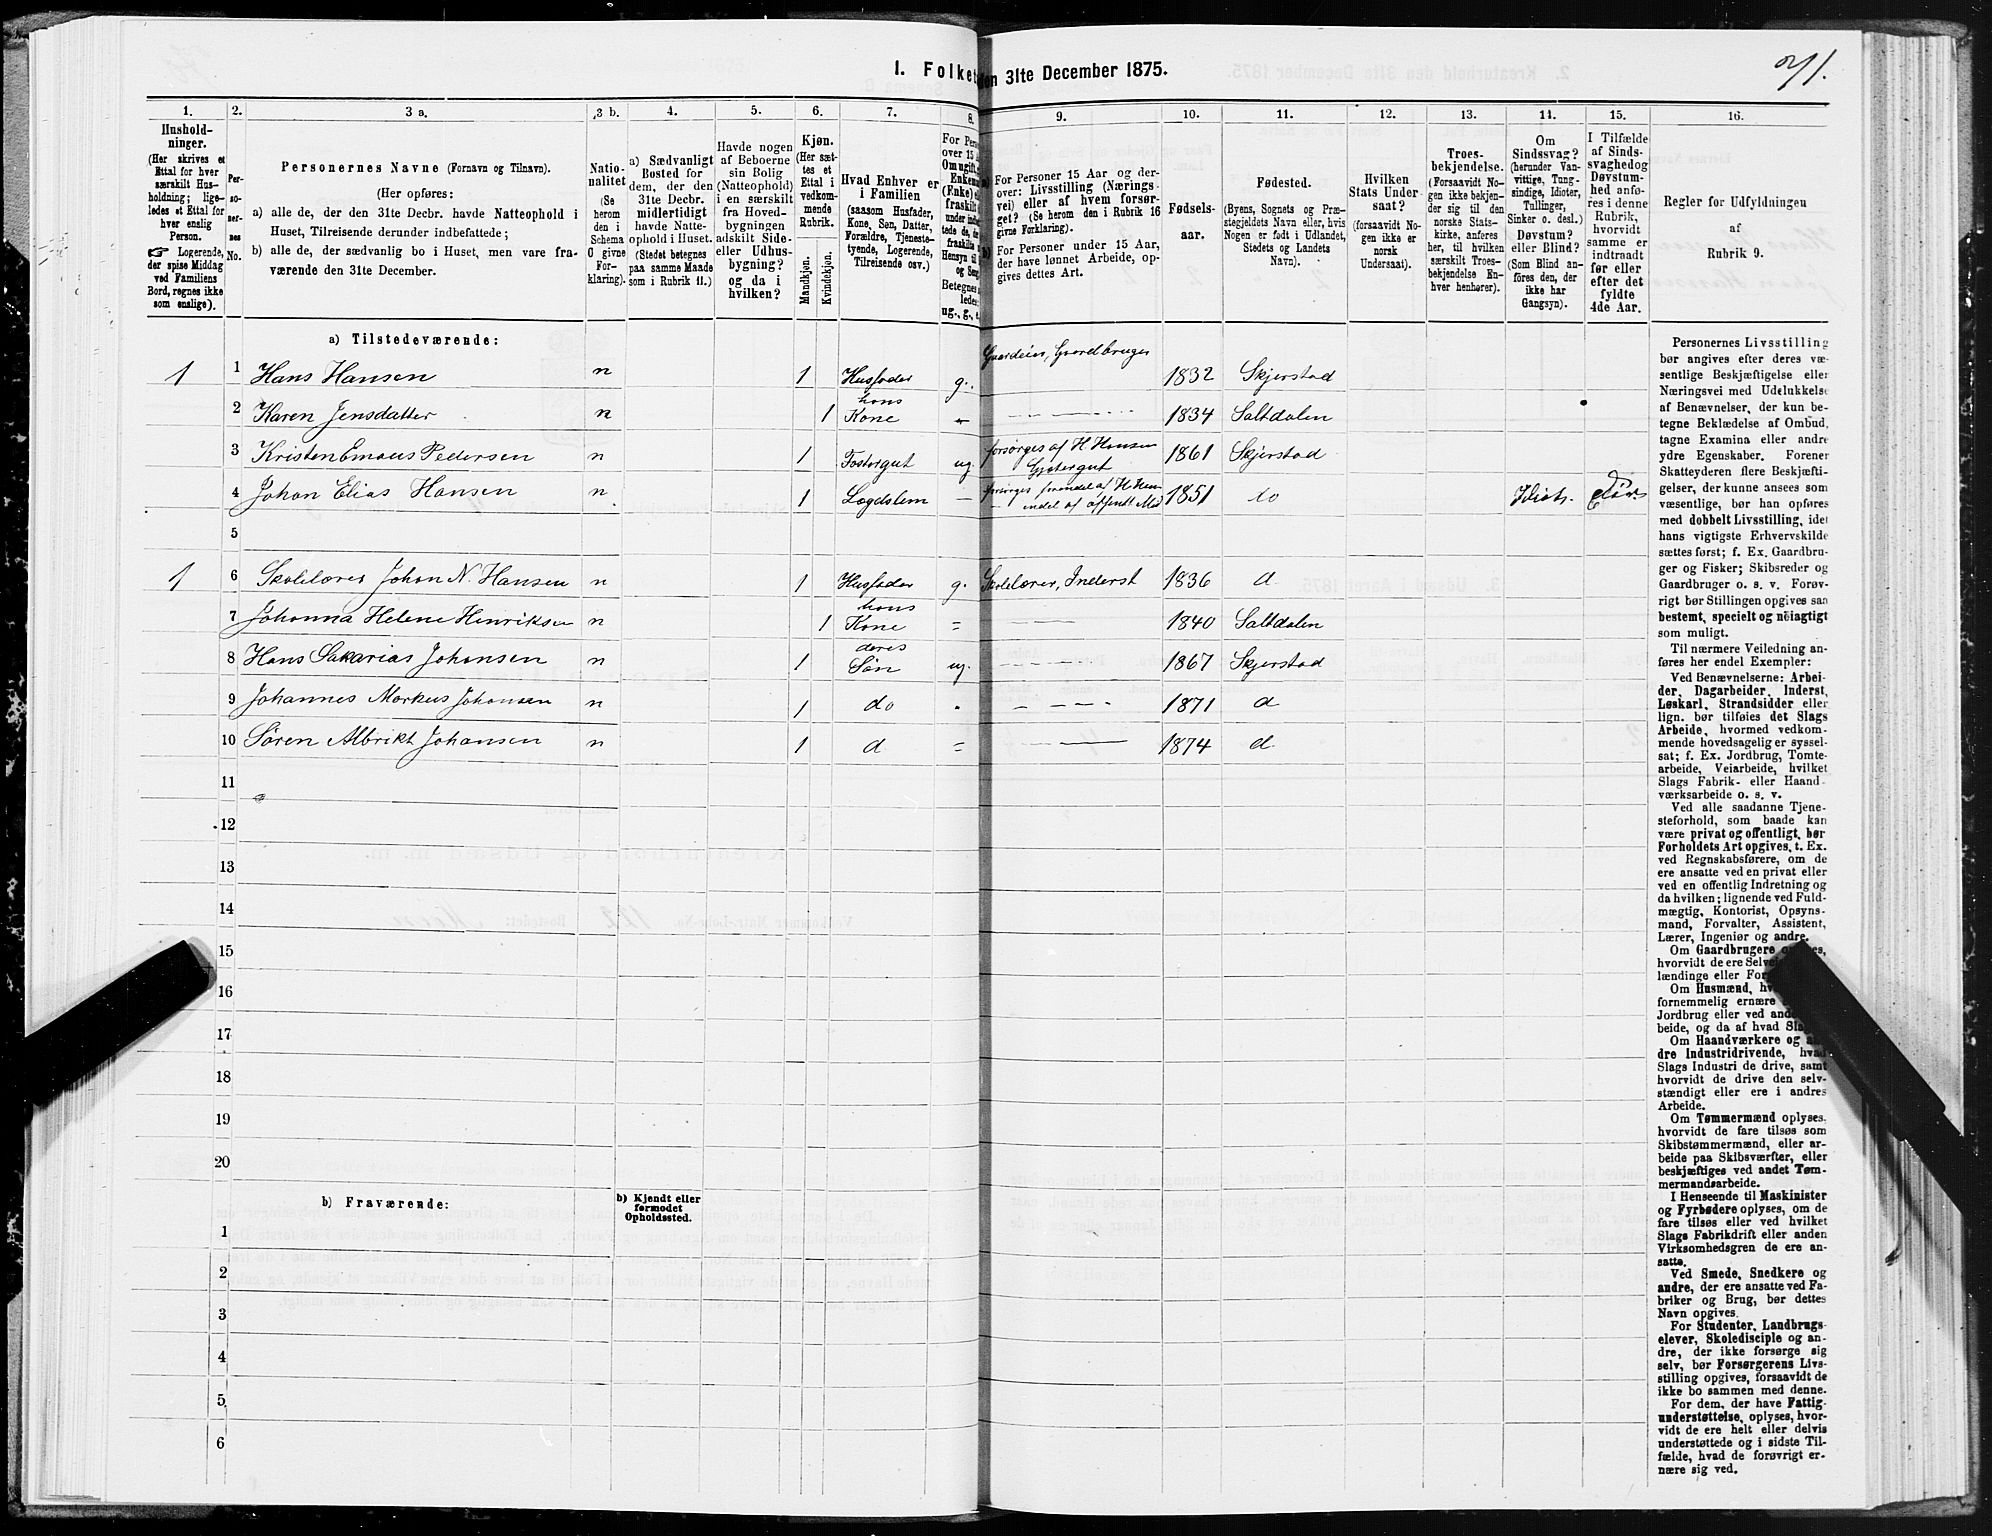 71.
1. Folket
den 31te December 1875.
1.
2.
3 a.
3 b.
4.
5.
6.
7.
8.
9.
10.
11.
12.
13.
14.
15.
16.
Hushold-
ninger.
(Her skrives et
Ettal for hver
særskilt Hus-
holdning; lige-
ledes et Ettal for
hver enslig
Person.
☞ Logerende,
der spise Middag
ved Familiens
Bord, regnes ikke
som enslige).
Per-
so-
ner-
nes
No.
Personernes Navne (Fornavn og Tilnavn).
(Her opføres:
a) alle de, der den 31te Decbr. havde Natteophold i
Huset, Tilreisende derunder indbefattede;
b) alle de, der sædvanlig bo i Huset, men vare fra-
værende den 31te December.
Natio-
nalitet
(Se
herom
den i
Schema
0 givne
For-
klaring).
a) Sædvanligt
Bosted for
dem, der den
31te Decbr.
midlertidigt
havde Natte-
ophold i Huset.
(Stedet betegnes
paa samme Maade
som i Rubrik 11.)
Havde nogen
af Beboerne
sin Bolig
(Natteophold)
i en særskilt
fra Hoved-
bygningen
adskilt Side-
eller Udhus-
bygning?
og da i
hvilken?
Kjøn.
(Her sæt-
tes et
Ettal i
vedkom-
mende
Rubrik.
Mandkjøn.
Kvindekjøn.
Hvad Enhver er
i Familien
(saasom Husfader,
Kone, Søn, Datter,
Forældre, Tjeneste-
tyende, Logerende,
Tilreisende osv.)
For Pers
over 15 A
Om ugift,
Enkem
(Enke) e
fraskilt
under indbe
tede de, de
fraskilte
Hensyn til
og Seng
Betegnes s
ledes:
ug., g., e.
a) For Personer 15 Aar og der-
over: Livsstilling (Nærings-
vei) eller af hvem forsør-
get? (Se herom den i Rubrik 16
givne Forklaring).
b) For Personer under 15 Aar,
der have lønnet Arbeide, op-
gives dettes Art.
Fødsels-
aar.
Fødested.
(Byens, Sognets og Præ-
stegjeldets Navn eller, hvis
Nogen er født i Udlandet,
Stedets og Landets
Navn).
Hvilken
Stats Under-
saat?
(forsaavidt No-
gen ikke er
norsk
Undersaat).
Troes-
bekjendelse.
(Forsaavidt No-
gen ikke bekjen-
der sig til den
norske Stats-
kirke, anføres
her, til hvilken
særskilt Troes-
bekjendelse En-
hver henhører).
Om
Sindssvag?
(herunder Van-
vittige, Tung-
sindige, Idioter,
Tullinger,
Sinker o. desl.)
Døvstum?
eller Blind?
(Som Blind an-
föres den, der
ikke har
Gangsyn).
I Tilfælde
af Sinds-
svaghedog
Døvstum-
hed anfø-
res i denne
Rubrik,
hvorvidt
samme er
indtraadt
før eller
efter det
fyldte
4de Aar.
Regler for Udfyldningen
af
Rubrik 9.
a) Tilstedeværende:
1 1 Hans Hansen n 1 Husfader g. Gaardeier, Gaardbruger 1832 Skjerstad
2 Karen Jensdatter n 1 hans Kone 1834 Saltdalen
3 Kristen Emaus Pedersen n 1 Fostergut ug. forsørges af H. Hansen Gjetergut 1861 Skjerstad
4 Johan Elias Hansen n 1 Lægdslem — forsørges 1851 do Idiot.
5
1 6 Skolelærer Johan N. Hansen n 1 Husfader g. Skolelærer, Inderst 1836 d
7 Johanna Helene Henriksen n 1 hans Kone = 1840 Saltdalen
8 Hans Sakarias Johansen n 1 deres Søn ug. 1867 Skjerstad
9 Johannes Markus Johansen n 1 do 1871 d
10 Søren Albrikt Johansen n 1 d = 1874 d.
11
12
13
14
15
16
17
18
19
20
b) Fraværende:
b) Kjendt eller
formodet
Opholdssted.
1
2
3
4
5
6
Personernes Livsstilling
bør angives efter deres væ-
sentlige Beskjæftigelse eller
Næringsvei med Udelukkelse
af Benævnelser, der kun be-
tegne Beklædelse af Ombud,
tagne Examina eller andre
ydre Egenskaber. Forener
Skatteyderen flere Beskjæfti-
gelser, der kunne ansees som
væsentlige, bør han opføres
med dobbelt Livsstilling, idet
hans vigtigste Erhvervskilde
sættes først; f. Ex. Gaardbru-
ger og Fisker; Skibsreder og
Gaardbruger o. s. v. Forøv-
rigt bør Stillingen opgives saa
bestemt, specielt og nöiagtigt
som muligt.
Til nærmere Veiledning an-
føres her endel Exempler:
Ved Benævnelserne: Arbei-
der, Dagarbeider, Inderst,
Løskarl, Strandsidder eller
lign. bør tilføies det Slags
Arbeide, hvormed vedkom-
mende hovedsagelig er syssel-
sat; f. Ex. Jordbrug, Tomte-
arbeide, Veiarbeide, hvilket
Slags Fabrik- eller Haand-
værksarbeide o. s. v.
Ved alle saadanne Tjene-
steforhold, som baade kan
være privat og offentligt, bør
Forholdets Art opgives, t. Ex.
ved Regnskabsførere, om de
ere ansatte ved en privat eller
ved en offentlig Indretning og
da hvilken; lignende ved Fuld-
mægtig, Kontorist, Opsyns-
mand, Forvalter, Assistent,
Lærer, Ingeniør og andre.
Om Gaardbrugere
hvorvidt de ere
lændinge eller
Om Husmænd,
fornemmelig ernære
Jordbrug eller ved
beide, og da af hvad
Om Haandværkere og
dre Industridrivende, hvad
Slags Industri de drive, samt
hvorvidt de drive den selv-
stændigt eller ere i andres
Arbeide.
Om Tømmermænd oplyses,
hvorvidt de fare tilsøs som
Skibstømmermænd, eller ar-
beide paa Skibsværfter, eller
beskjæftiges ved andet Tøm-
mermandsarbeide.
I Henseende til Maskinister
og Fyrbødere oplyses, om de
fare tilsøs eller ved hvilket
Slags Fabrikdrift eller anden
Virksomhedsgren de ere an-
satte.
Ved Smede, Snedkere og
andre, der ere ansatte ved Fa-
briker og Brug, bør dettes
Navn opgives.
For Studenter, Landbrugs-
elever, Skoledisciple og an-
dre, der ikke forsørge sig
selv, bør Forsørgerens Livs-
stilling opgives, forsaavidt de
ikke bo sammen med denne.
For dem, der have Fattig-
understøttelse, oplyses, hvor-
vidt de ere helt eller delvis
understøttede og i sidste Til-
fælde, hvad de forøvrigt er-
nære sig ved.